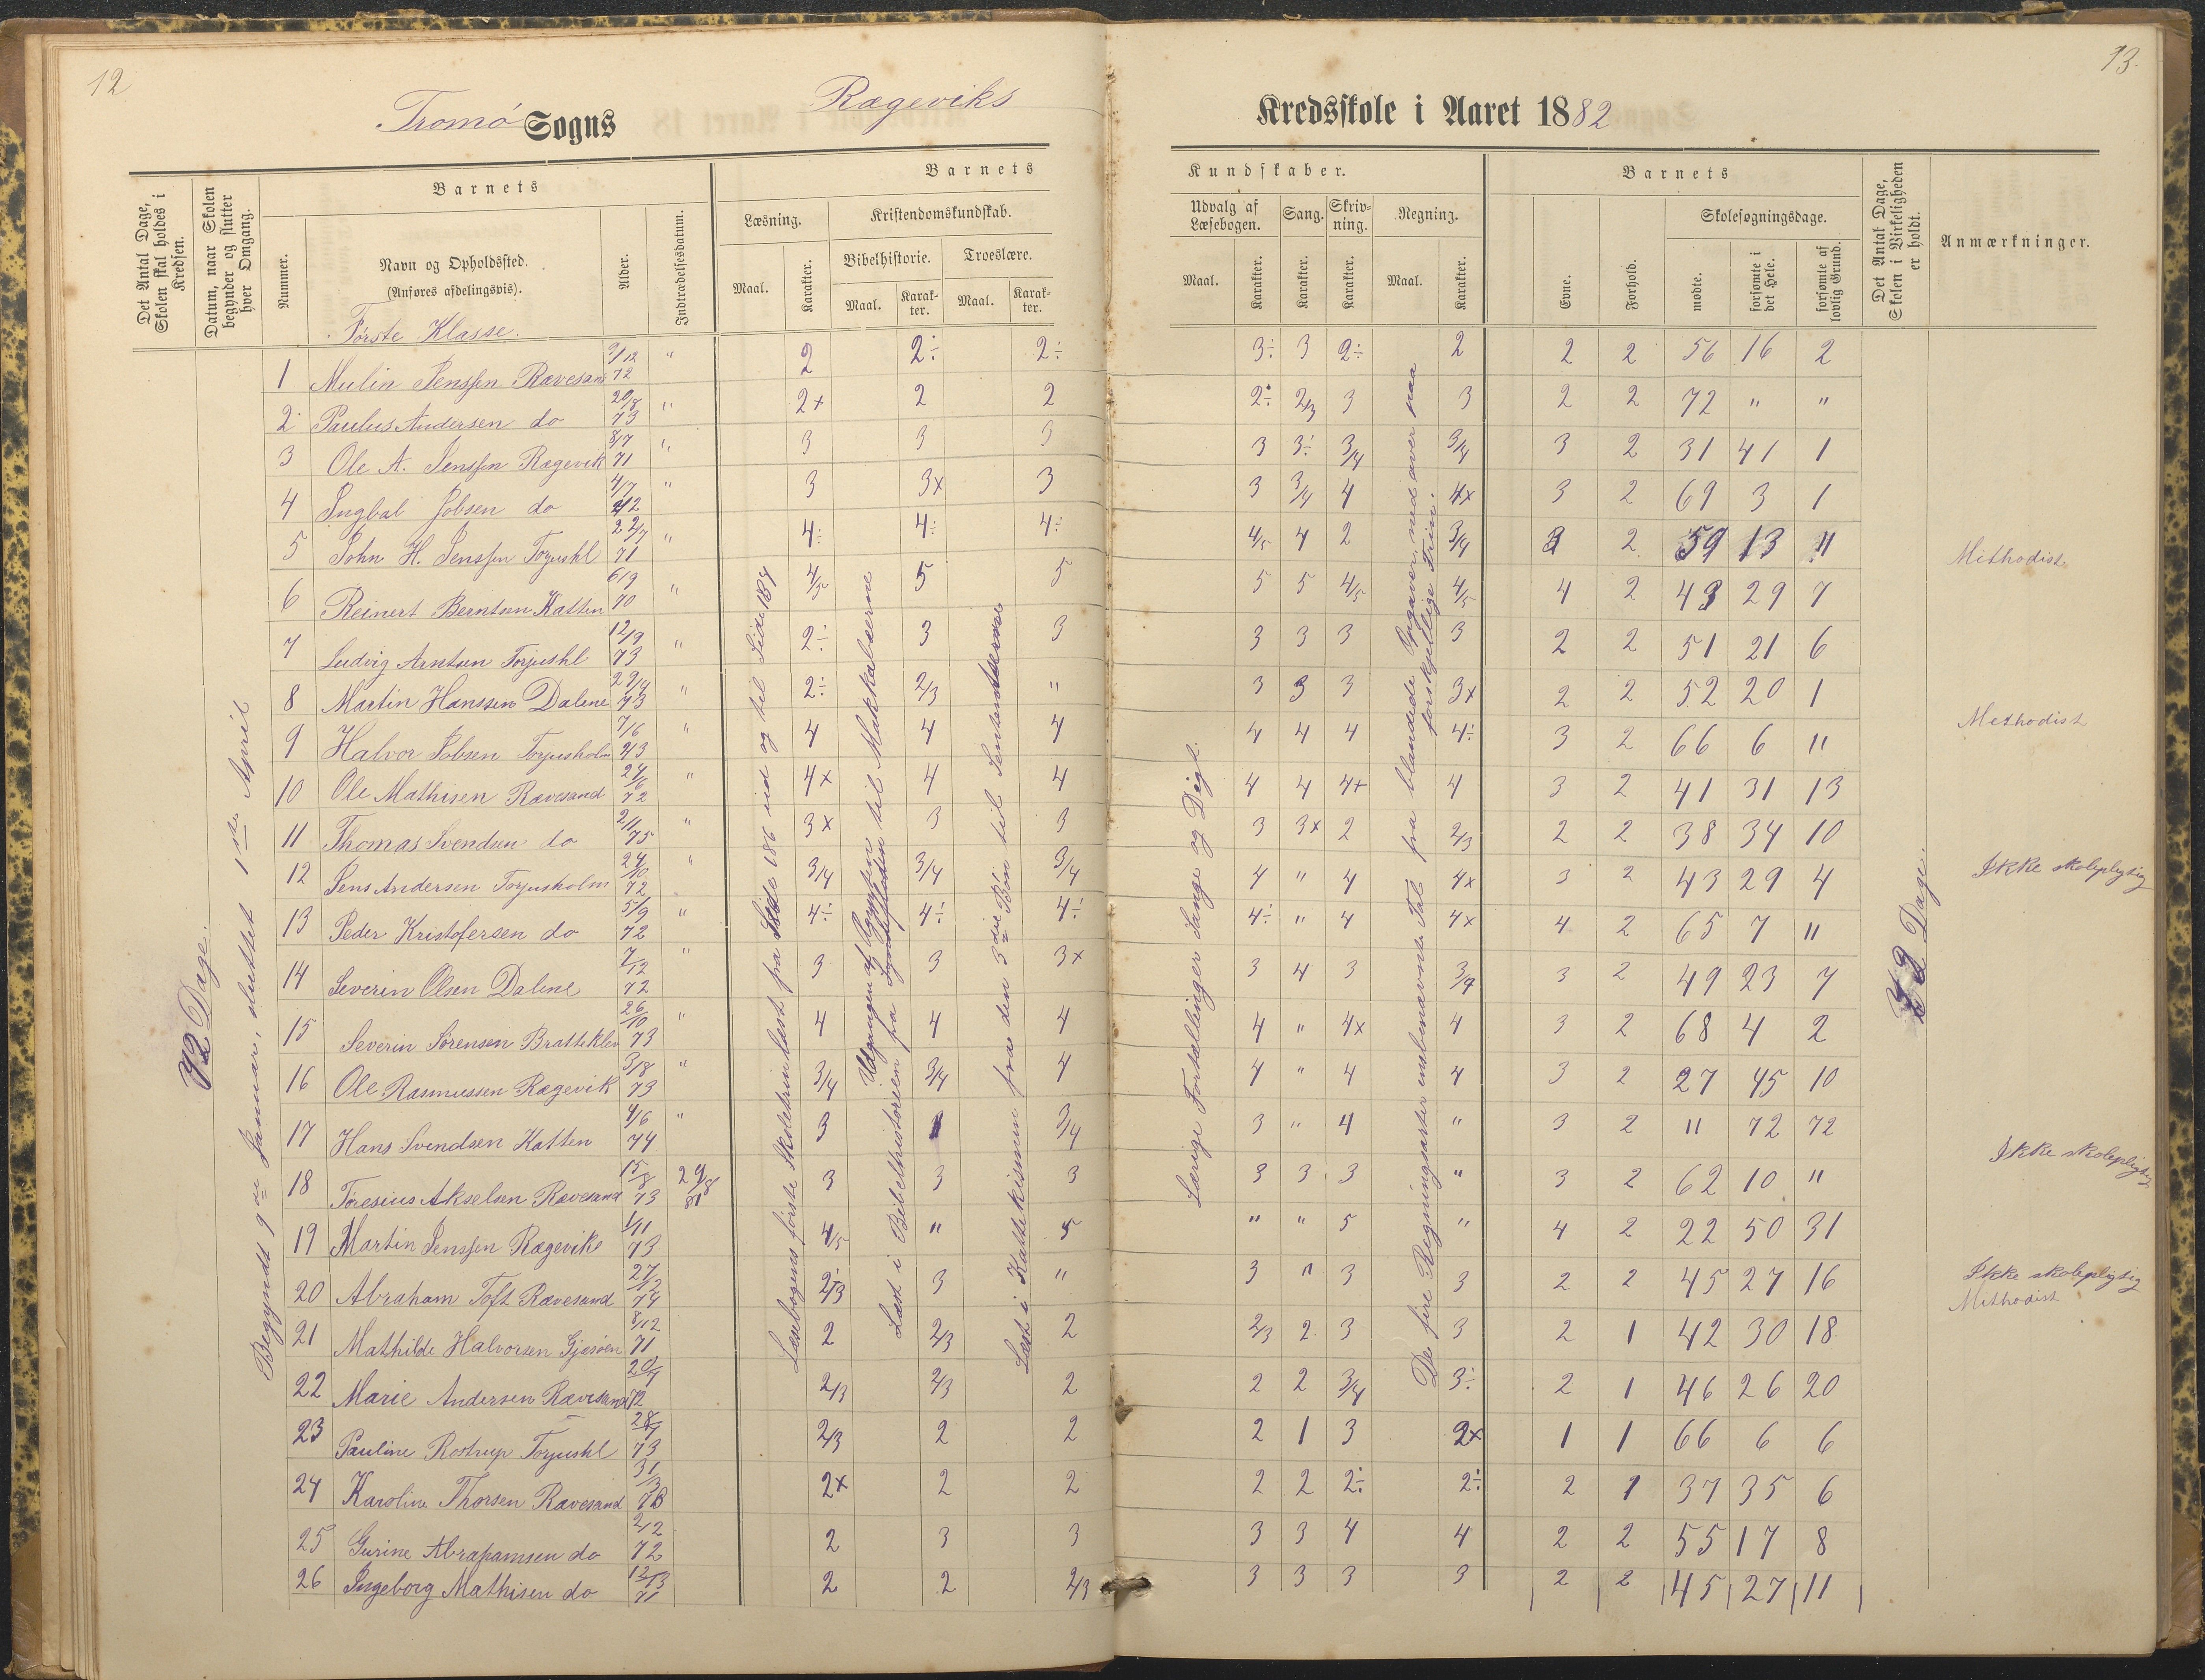 12
13.
Tromö Sogns
Rægeviks
Kredsskole i Aaret 1882
Det Antal Dage, Skolen skal holdes i Kredsen.
Datum, naar Skolen begynder og slutter hver Omgang.
Barnets
Nummer.
Navn og Opholdssted.
(Anføres afdelingsvis).
Alder.
Indtrædelsesdatum.
Barnets
Læsning.
Maal.
Karakter.
Kristendomskundskab.
Bibelhistorie.
Maal.
Karakter.
Troeslære.
Maal.
Karakter.
Kundskaber.
Udvalg af Læsebogen.
Maal.
Karakter.
Sang.
Karakter.
Skrivning.
Karakter.
Regning.
Maal.
Karakter.
Barnets
Evne.
Forhold.
Skolesøgningsdage.
mødte.
forsømte i det Hele.
forsømte af lovlig Grund.
Det Antal Dage, Skolen i Virkeligheden er holdt.
Anmærkninger.
Første Klasse.
72 Dage.
Begyndt 9de Januar, sluttet 1ste April
Læsebogens første Skoletrin læst fra Side 186 ind og til Side 184
Læst i Bibelhistorien fra Syndfloden til Makkabæerne
Udgangen af Ægypten
Læst i Kattekismen fra den 3die Bön til Sentensene
Lærige Fortællinger Sange og Digt.
De fire Regningsarter ensbenævnte Tal fra blandede Opgaver ned over paa forskjellige Trin.
72 Dage.
1 Mulin Jenssen Rævesand 9/12 72 " 2 2÷ 2÷ 3÷ 3 2÷ 2 2 2 56 16 2
2 Paulus Andersen do 20/8 73 " 2+ 2 2 2÷ 2/3 3 3 2 2 72 " "
3 Ole A. Jenssen Rægevik 8/7 71 " 3 3 3 3 3÷ 3/4 3/4 3 2 31 41 1
4 Ingbal Jobsen do 4/7 " 3 3x 3 3 3/4 4 4x 3 2 69 3 1
5 John H. Jenssen Torjushl 22/7 71 " 4÷ 4÷ 4÷ 4/5 4 2 3/4 3 2 59 13 " Methodist
6 Reinert Berntsen Katten 6/9 70 " 4/5 5 5 5 5 4/5 4/5 4 2 43 29 7
7 Ludvig Arntsen Torjushl 12/9 73 " 2÷ 3 3 3 3 3 3 2 2 51 21 6
8 Martin Hanssen Dalene 73 " 2÷ 2/3 " 3 3 3 3x 2 2 52 20 1 Methodist
9 Halvor Jobsen Torjusholm 7/6 73 " 4 4 4 4 4 4 4÷ 3 2 66 6 "
10 Ole Mathisen Rævesand 24/6 72 " 4x 4 4 4 4 4+ 4 3 2 41 31 13
11 Thomas Svendsen do 2/11 75 " 3x 3 3 3 3x 2 2/3 2 2 38 34 10 Ikke skolepligtig
12 Jens Andersen Torjusholm 24/10 72 " 3/4 3/4 3/4 4 " 4 4x 3 2 43 29 4
13 Peder Kristofersen do 5/9 72 " 4÷ 4÷ 4÷ 4÷ " 4 4x 4 2 65 7 "
14 Severin Olsen Dalene 7/12 72 " 3 3 3x 3 4 3 3/4 3 2 49 23 7
15 Severin Sörensen Bratteklev 26/10 73 " 4 4 4 4 " 4x 4 3 2 68 4 2
16 Ole Rasmussen Rægevik 3/8 73 " 3/4 3/4 4 4 " 4 4 3 2 27 45 10
17 Hans Svendsen Katten 4/6 74 " 3 3/4 3 " 4 " 3 2 " 72 72 Ikke skolepligtig
18 Töresius Akselsen Rævesand 15/8 73 29/8 81 3 3 3 3 3 3 " 3 2 62 10 "
19 Martin Jenssen Rægevike 1/11 73 4/5 " 5 " " 5 " 4 2 22 50 31
20 Abraham Toft Rævesand 27/12 74 2/3 3 " 3 " 3 3 2 2 45 27 16 Ikke skolepligtig Methodist
21 Mathilde Halvorsen Gjesöen 8/12 71 2 2/3 2 2/3 2 3 3 2 1 42 30 18
22 Marie Andersen Rævesand 72 2/3 2/3 2 2 2 3/4 3÷ 2 1 46 26 20
23 Pauline Rostrup Torjushl 73 2/3 2 2 2 1 3 2x 1 1 66 6 6
24 Karoline Thorsen Rævesand 31/3 73 2x 2 2 2 2 2÷ 2÷ 2 1 37 35 6
25 Gurine Abrahamsen do 2/12 72 2 3 3 3 3 4 4 2 2 55 17 8
26 Ingeborg Mathisen do 71 2 2 2/3 3 3 3 3 2 2 45 27 11